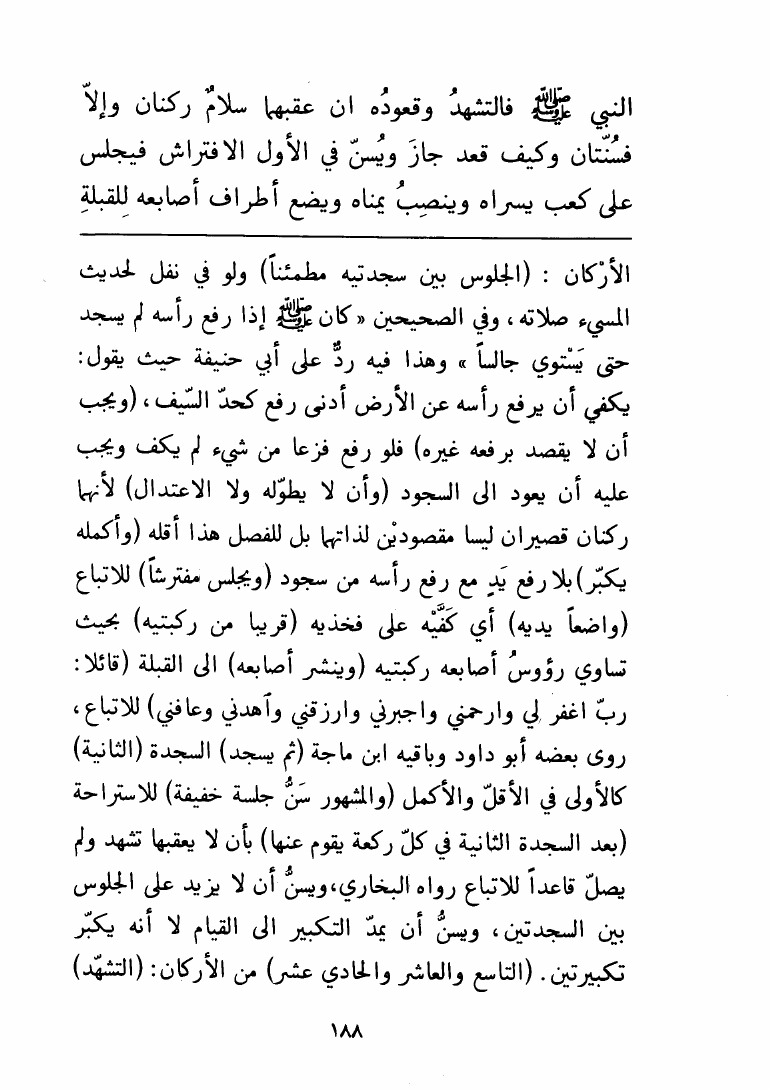 النبي ﷺ فالتشهدُ وقعودُه ان عقبهما سلامٌ ركنان وإلاّ
فسُنّتان وكيف قعد جازَ ويُسنّ في الأول الافتراش فيجلس
على كعب يسراه وينصِبُ يمناه ويضع أطراف أصابعه لِلقبلةِ
الأرْكان : (الجلوس بين سجدتيه مطمئناً) ولو في نفل لحديث
المسيء صلاته، وفي الصحيحين «كان ﷺ إذا رفع رأسه لم يسجد
حتى يَسْتوي جالساً» وهذا فيه ردٌّ على أبي حنيفة حيث يقول:
يكفي أن يرفع رأسه عن الأرض أدنى رفع كحدّ السّيف، (ويجب
أن لا يقصد برفعه غيره) فلو رفع فزعا من شيء لم يكف ويجب
عليه أن يعود الى السجود (وأن لا يطوّله ولا الاعتدال) لأنهما
ركنان قصيران ليسا مقصوديْن لذاتهما بل للفصل هذا أقله (وأكمله
يكبّر) بلا رفع يَدٍ مع رفع رأسه من سجود (ويجلس مفترشاً) للاتباع
(واضعاً يديه) أي كَفَّيْه على فخذيه (قريبا من ركبتيه) بحيث
تساوي رؤوسُ أصابعه ركبتيه (وينشر أصابعه) الى القبلة (قائلا:
ربّ اغفر لي وارحمني واجبرني وارزقني وآهدني وعافني) للاتباع،
روى بعضه أبو داود وباقيه ابن ماجة (ثم يسجد) السجدة (الثانية)
كالأولى في الأقلّ والأكمل (والمشهور سَنُّ جلسة خفيفة) للاستراحة
(بعد السجدة الثانية في كلّ ركعة يقوم عنها) بأن لا يعقبها تشهد ولم
يصلّ قاعداً للاتباع رواه البخاري، ويسنُّ أن لا يزيد على الجلوس
بين السجدتين، ويسنُّ أن يمدّ التكبير الى القيام لا أنه يكبّر
تكبيرتين. (التاسع والعاشر والحادي عشر) من الأركان: (التشهّد)
١٨٨